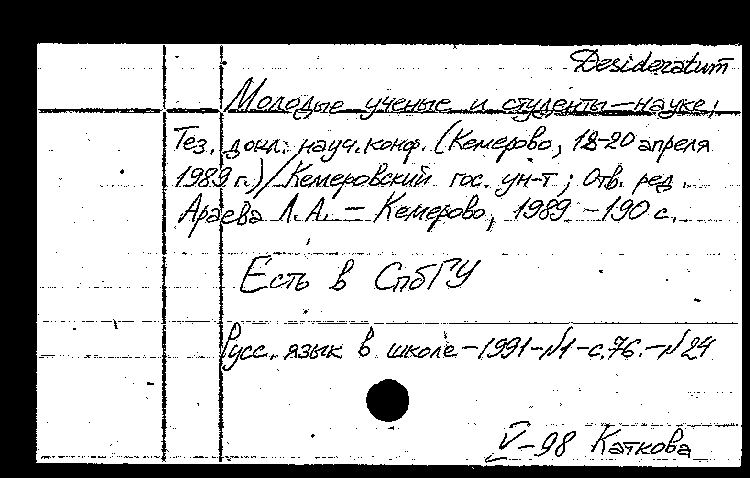 Desideratum
Молодые ученые и студенты – науке:
Тез. докл. науч. конф. (Кемерово, 18-20 апреля
1989 г.) / Кемеровский гос. ун-т; Отв. ред.
Араева Л. А. – Кемерово, 1989 – 190 с.
Есть в СПбГУ
Русс. язык в школе – 1991 – №1 – с. 76. – №24
V – 98 Каткова